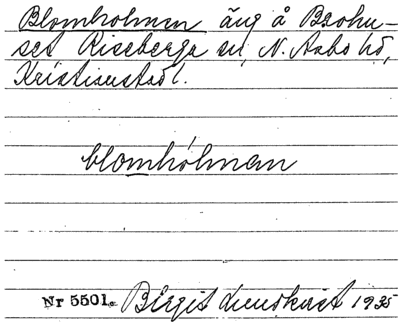 Blomholmen äng å Brohu-
set Riseberga sn, N. Åsbo hd,
Kristianstad l.
blomhólman
Nr 5501. Birgit Lundkvist 1935